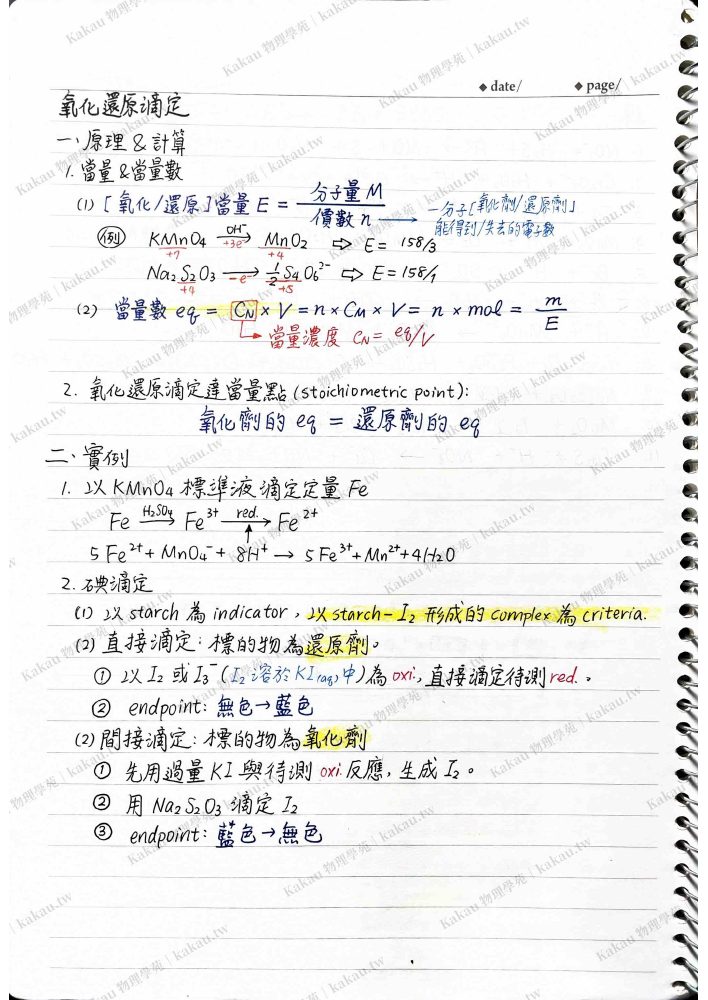 ◆ date/ ◆ page/
氧化還原滴定
一、原理 & 計算
1. 當量 & 當量數
(1) [氧化/還原]當量 E = 分子量 M / 價數 n → 一分子[氧化劑/還原劑]
能得到/失去的電子數
例 KMnO4 OH⁻ → +3e⁻ MnO2 ⇨ E = 158/3
+7 +4
Na2S2O3 → -e⁻ ½ S4O6²⁻ ⇨ E = 158/1
+4 +5
(2) 當量數 eq = CN × V = n × CM × V = n × mol = m / E
↳ 當量濃度 CN = eq/V
2. 氧化還原滴定達當量點 (stoichiometric point):
氧化劑的 eq = 還原劑的 eq
二、實例
1. 以 KMnO4 標準液滴定定量 Fe
Fe H2SO4 → Fe³⁺ red. → Fe²⁺
5Fe²⁺ + MnO4⁻ + 8H⁺ → 5Fe³⁺ + Mn²⁺ + 4H2O
2. 碘滴定
(1) 以 starch 為 indicator，以 starch-I2 形成的 complex 為 criteria.
(2) 直接滴定：標的物為還原劑。
① 以 I2 或 I3⁻ (I2 溶於 KI(aq) 中) 為 oxi., 直接滴定待測 red. 。
② endpoint: 無色→藍色
(2) 間接滴定：標的物為氧化劑
① 先用過量 KI 與待測 oxi. 反應，生成 I2。
② 用 Na2S2O3 滴定 I2
③ endpoint: 藍色→無色
Kakau 物理學苑 | kakau.tw